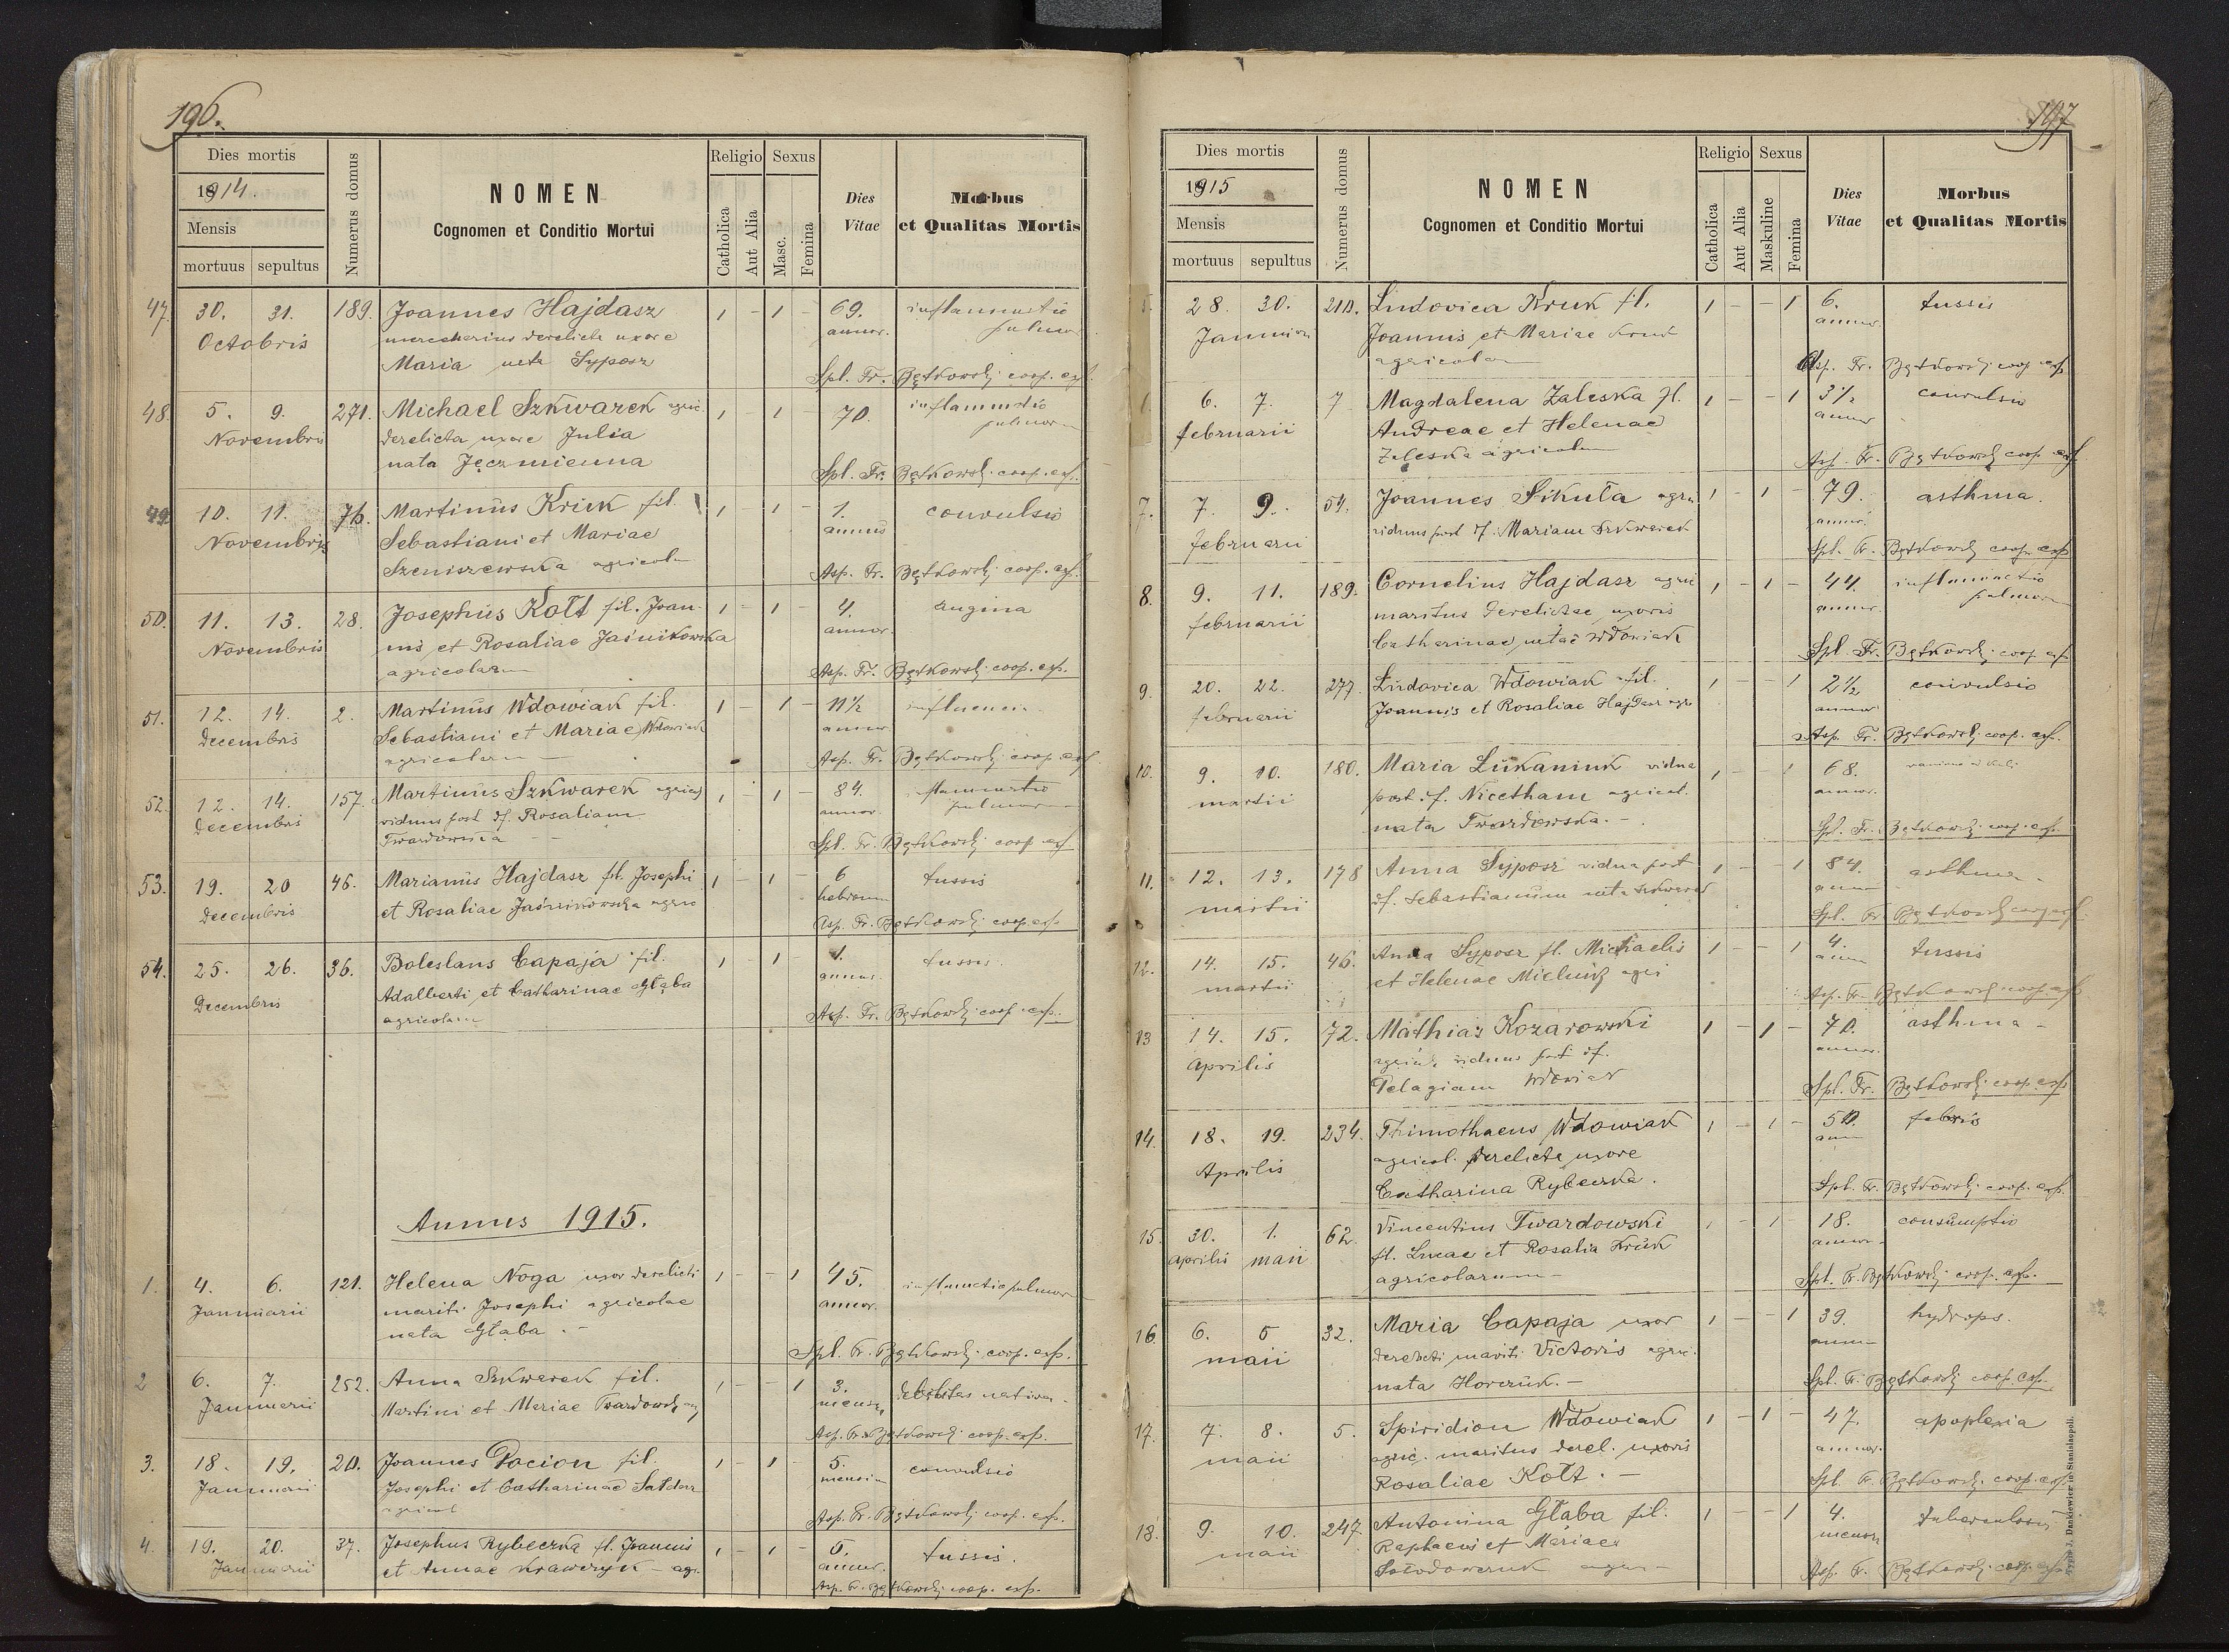 196.
Dies mortis
1914.
Mensis
mortuus sepultus
Numerus domus
NOMEN
Cognomen et Conditio Mortui
Religio Sexus
Catholica
Aut Alia
Masc.
Femina
Dies
Vitae
Morbus
et Qualitas Mortis
47. 30. 31. 189. Joannes Hajdasz 1 - 1 - 69. inflammatio
Octobris mercenarius derelicta uxore annor. pulmon
Maria nata Syposz
Spl. Fr. Bętkowski coop. exp.
48. 5. 9. 271. Michael Szkwarek agric. 1 - 1 - 70. inflammatio
Novembris derelicta uxore Julia pulmon
nata Jęczmienna
Spl. Fr. Bętkowski coop. exp.
49. 10. 11. 76. Martinus Kruk fil. 1 - 1 - 1. convulsio
Novembris Sebastiani et Mariae annus
Szeniszewska agricola
Asp. Fr. Bętkowski coop. exp.
50. 11. 13. 28. Josephus Kołt fil. Joan- 1 - 1 - 4. angina
Novembris nis et Rosaliae Jaśnikowska annor.
agricolarum
Asp. Fr. Bętkowski coop. exp.
51. 12. 14. 2. Martinus Wdowiak fil. 1 - 1 - 11½
Decembris Sebastiani et Mariae Wdowiak annor
agricolarum
Asp. Fr. Bętkowski coop. exp
52. 12. 14. 157. Martinus Szkwarek agricol 1 - 1 - 84. inflammatio
Decembris viduus post df. Rosaliam annor. pulmon
Twardowska
Spl. Fr. Bętkowski coop exp
53. 19. 20 46. Marianus Hajdasz fil. Josephi 1 - 1 - 6 tussis
Decembris et Rosaliae Jaśnikowska agric hebdom
Asp. Fr. Bętkowski coop exp.
54. 25. 26. 36. Boleslaus Capaja fil. 1 - 1 - 1. tussis
Decembris Adalberti et Catharinae Głąba annus.
agricolarum
Asp. Fr. Bętkowski coop. exp.
Annus 1915.
1. 4. 6. 121. Helena Noga uxor derelicti 1 - - 1 45. inflamatio pulmon
Januarii mariti Josephi agricolae annor.
nata Głąba. -
Spl. Fr. Bętkowski coop. exp.
2 6. 7. 252. Anna Szkwarek fil. 1 - - 1 3. debilitas nativa -
Januarii Martini et Mariae Twardowska mens.
Asp. Fr. Bętkowski coop. exp.
3. 18. 19. 20. Joannes Pocion fil. 1 - 1 - 5. convulsio
Januarii Josephi et Catharinae mensium
agricol
Asp. Fr. Bętkowski coop. exp.
4. 19. 20. 37. Josephus Rybeczka fil. Joannis 1 - 1 - 5. tussis.
Januarii et Annae Krawczyk - agr. annor.
Asp. Fr. Bętkowski coop. exp.
197
Dies mortis
1915
Mensis
mortuus sepultus
Numerus domus
NOMEN
Cognomen et Conditio Mortui
Religio Sexus
Catholica
Aut Alia
Maskuline
Femina
Dies
Vitae
Morbus
et Qualitas Mortis
5. 28 30. 210. Ludovica Kruk fil. 1 - - 1 6. tussis
Januarii Joannis et Mariae Kruk annor.
agricolar
Asp. Fr. Bętkowski coop exp
6. 7. 7 Magdalena Zaleska fl. 1 - - 1 3½ convulsio
februarii Andreae et Helenae annor
Zaleska agricolarum
Asp. Fr. Bętkowski coop. exp.
7. 7. 9. 54. Joannes Sikuła agric 1 - 1 - 79. asthma.
februarii viduus post df. Mariam Szkwarek annor.
Spl. Fr. Bętkowski coop. exp
8. 9. 11. 189. Cornelius Hajdasz agric 1 - 1 - 44. inflammatio
februarii maritus derelictae uxoris annor. pulmon
Catharinae natae Wdowiak
Spl. Fr. Bętkowski coop. exp
9. 20. 22. 277. Ludovica Wdowiak fil. 1 - 1 2½ convulsio
februarii Joannis et Rosaliae Hajdasz agr annor
Asp. Fr. Bętkowski coop. exp.
10. 9. 10. 180. Maria Łukaniuk vidua 1 - 1 68.
martii post df. Nicetham agricol. annor.
nata Twardowska. -
Spl. Fr. Bętkowski coop. exp.
11. 12. 13. 178 Anna Syposz vidua post 1 - 1 84. asthma -
martii df. Sebastianum nata Szkwarek annor
Spl. Fr. Bętkowski coop exp.
12. 14. 15. 46. Anna Syposz fl. Michaelis 1 - - 1 4. tussis
martii et Helenae Mielnik agri annor
Asp. Fr. Bętkowski coop. exp
13 14. 15. 72. Mathias Kozarowski 1 - 1 - 70. asthma -
Aprilis agric. viduus post df. annor.
Pelagiam Wdowiak
Spl. Fr. Bętkowski coop. exp
14. 18. 19. 234. Thimothaeus Wdowiak 1 - 1 - 50. febris
Aprilis agricol. derelicta uxore ann
Catharina Rybeczka.
Spl. Fr. Bętkowski coop. exp.
15. 30. 1. 62. Vincentius Twardowski 1 - 1 - 18. consumptio
aprilis maii fl. Lucae et Rosalia Kruk annor
agricolarum -
Spl. Fr. Bętkowski coop. exp.
16 6. 32. Maria Capaja uxor 1 - - 1 39. hydrops.
maii derelicti mariti Victoris agric. annor
nata Horczuk. -
Spl. Fr. Bętkowski coop. exp.
17. 7. 8. 5. Spiridion Wdowiak 1 - 1 - 47. apoplexia
maii agric. maritus derel. uxoris annor.
Rosaliae Kołt. -
Spl. Fr. Bętkowski coop. exp
18. 9. 10. 247 Antonina Głąba fil. 1 - - 1 4. tuberculosis
maii Raphaeli et Mariae mensium
Sołodowczuk
Asp. Fr. Bętkowski coop. exp
Typis J. Dankiewicz in Stanislaopoli.